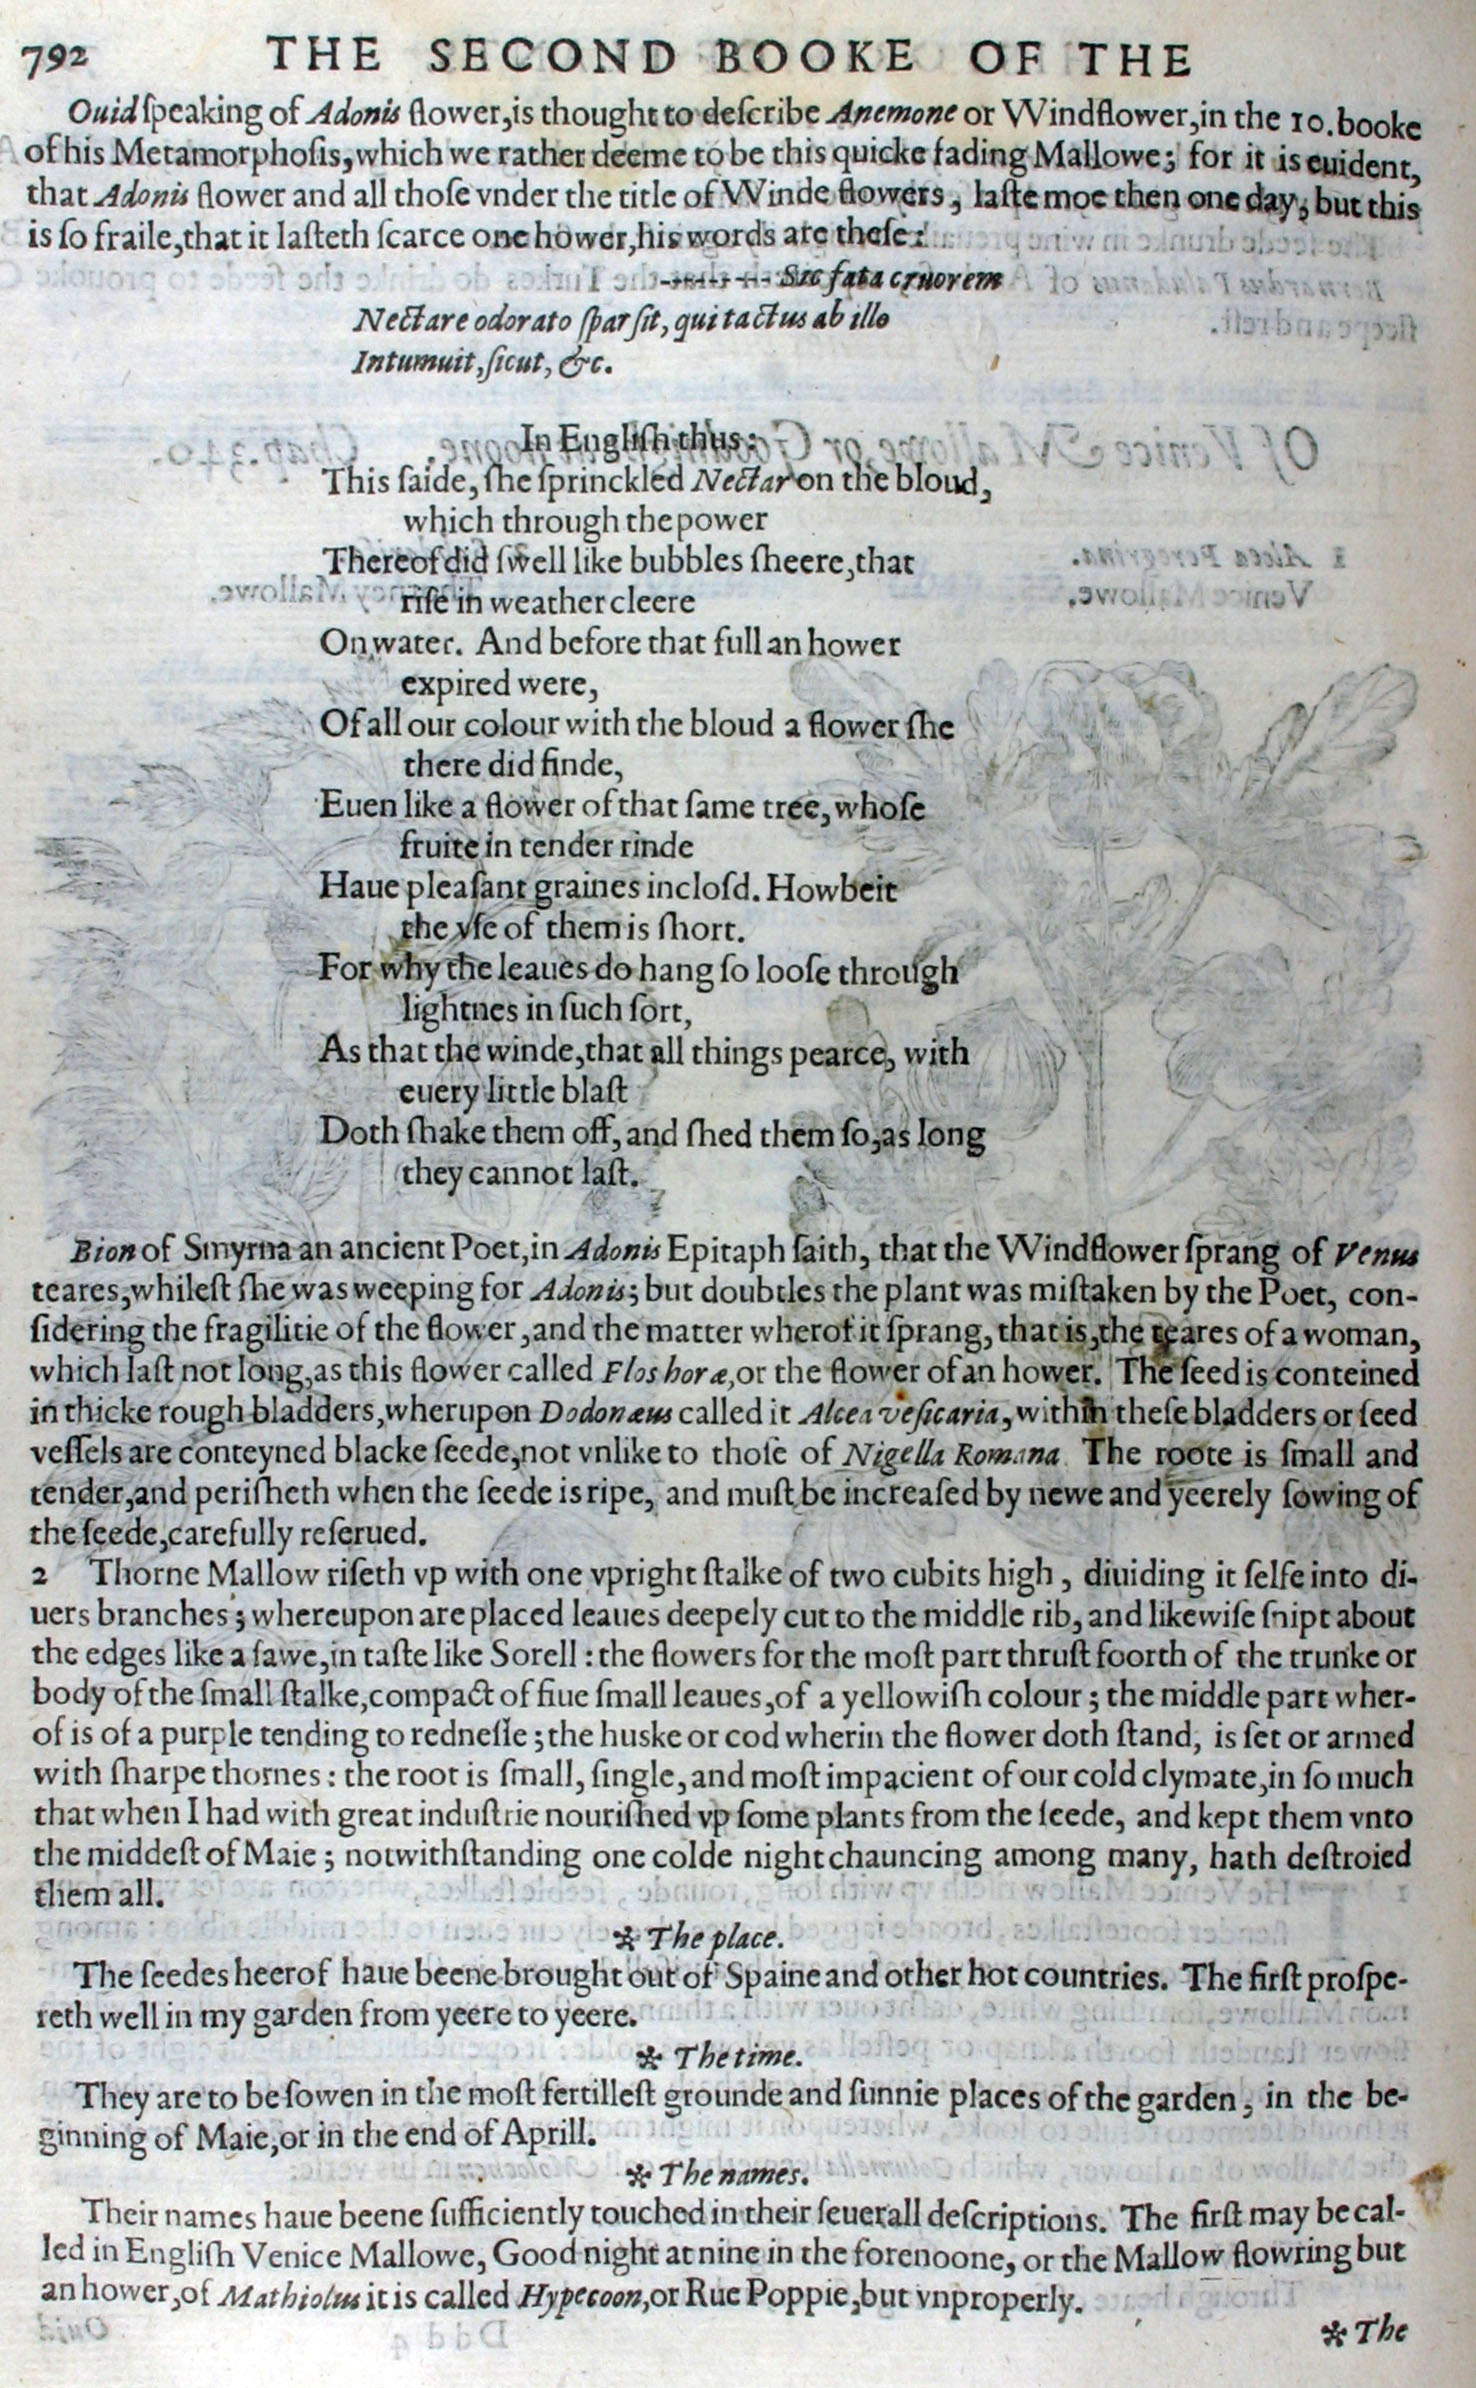 792 THE SECOND BOOKE OF THE
Ouid ſpeaking of Adonis flower, is thought to deſcribe Anemone or Windflower, in the 10. booke
of his Metamorphoſis, which we rather deeme to be this quicke fading Mallowe; for it is euident,
that Adonis flower and all thoſe vnder the title of Winde flowers, laſte moe then one day, but this
is ſo fraile, that it laſteth ſcarce one hower, his words are theſe:
Sic fata cruorem
Nectare odorato ſparſit, qui tactus ab illo
Intumuit, ſicut, &c.
In Engliſh thus:
This ſaide, ſhe ſprinckled Nectar on the bloud,
which through the power
Thereof did ſwell like bubbles ſheere, that
riſe in weather cleere
On water. And before that full an hower
expired were,
Of all our colour with the bloud a flower ſhe
there did finde,
Euen like a flower of that ſame tree, whoſe
fruite in tender rinde
Haue pleaſant graines incloſd. Howbeit
the vſe of them is ſhort.
For why the leaues do hang ſo looſe through
lightnes in ſuch ſort,
As that the winde, that all things pearce, with
euery little blaſt
Doth ſhake them off, and ſhed them ſo, as long
they cannot laſt.
Bion of Smyrna an ancient Poet, in Adonis Epitaph ſaith, that the Windflower ſprang of Venus
teares, whileſt ſhe was weeping for Adonis; but doubtles the plant was miſtaken by the Poet, con-
ſidering the fragilitie of the flower, and the matter wherof it ſprang, that is, the teares of a woman,
which laſt not long, as this flower called Flos horæ, or the flower of an hower. The ſeed is conteined
in thicke rough bladders, wherupon Dodonæus called it Alcea veſicaria, within theſe bladders or ſeed
veſſels are conteyned blacke ſeede, not vnlike to thoſe of Nigella Romana. The roote is ſmall and
tender, and periſheth when the ſeede is ripe, and muſt be increaſed by newe and yeerely ſowing of
the ſeede, carefully reſerued.
2 Thorne Mallow riſeth vp with one vpright ſtalke of two cubits high, diuiding it ſelfe into di-
uers branches; whereupon are placed leaues deepely cut to the middle rib, and likewiſe ſnipt about
the edges like a ſawe, in taſte like Sorell: the flowers for the moſt part thruſt foorth of the trunke or
body of the ſmall ſtalke, compact of fiue ſmall leaues, of a yellowiſh colour; the middle part wher-
of is of a purple tending to redneſſe; the huske or cod wherin the flower doth ſtand, is ſet or armed
with ſharpe thornes: the root is ſmall, ſingle, and moſt impacient of our cold clymate, in ſo much
that when I had with great induſtrie nouriſhed vp ſome plants from the ſeede, and kept them vnto
the middeſt of Maie; notwithſtanding one colde night chauncing among many, hath deſtroied
them all.
✲ The place.
The ſeedes heerof haue beene brought out of Spaine and other hot countries. The firſt proſpe-
reth well in my garden from yeere to yeere.
✲ The time.
They are to be ſowen in the moſt fertilleſt grounde and ſunnie places of the garden, in the be-
ginning of Maie, or in the end of Aprill.
✲ The names.
Their names haue beene ſufficiently touched in their ſeuerall deſcriptions. The firſt may be cal-
led in Engliſh Venice Mallowe, Good night at nine in the forenoone, or the Mallow flowring but
an hower, of Mathiolus it is called Hypecoon, or Rue Poppie, but vnproperly.
✲ The